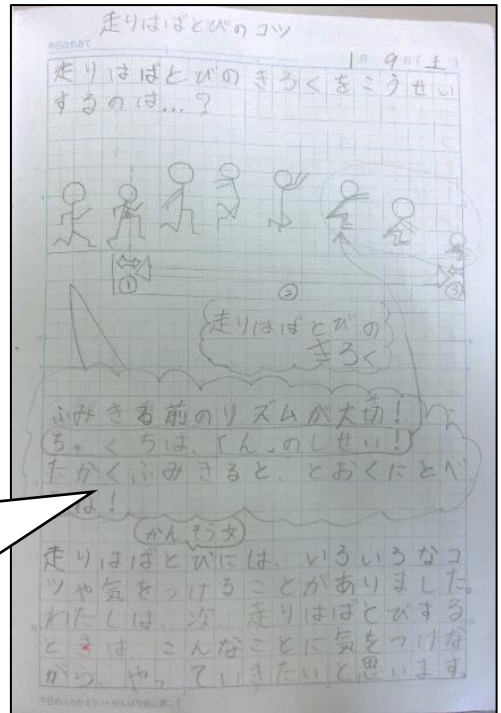 走りはばとびのコツ
今日のめあて
1月9日(土)
走りはばとびのきろくをこうせい
するのは…?
①
②
③
走りはばとびの
きろく
ふみきる前のリズムが大切!
ちゃくちは、「ん」のしせい!
たかくふみきると、とおくにとべ
ね!
かんそう文
走りはばとびには、いろいろなコ
ツや気をつけることがありました。
わたしは、次、走りはばとびする
ときは、こんなことに気をつけな
がら、やっていきたいと思います。